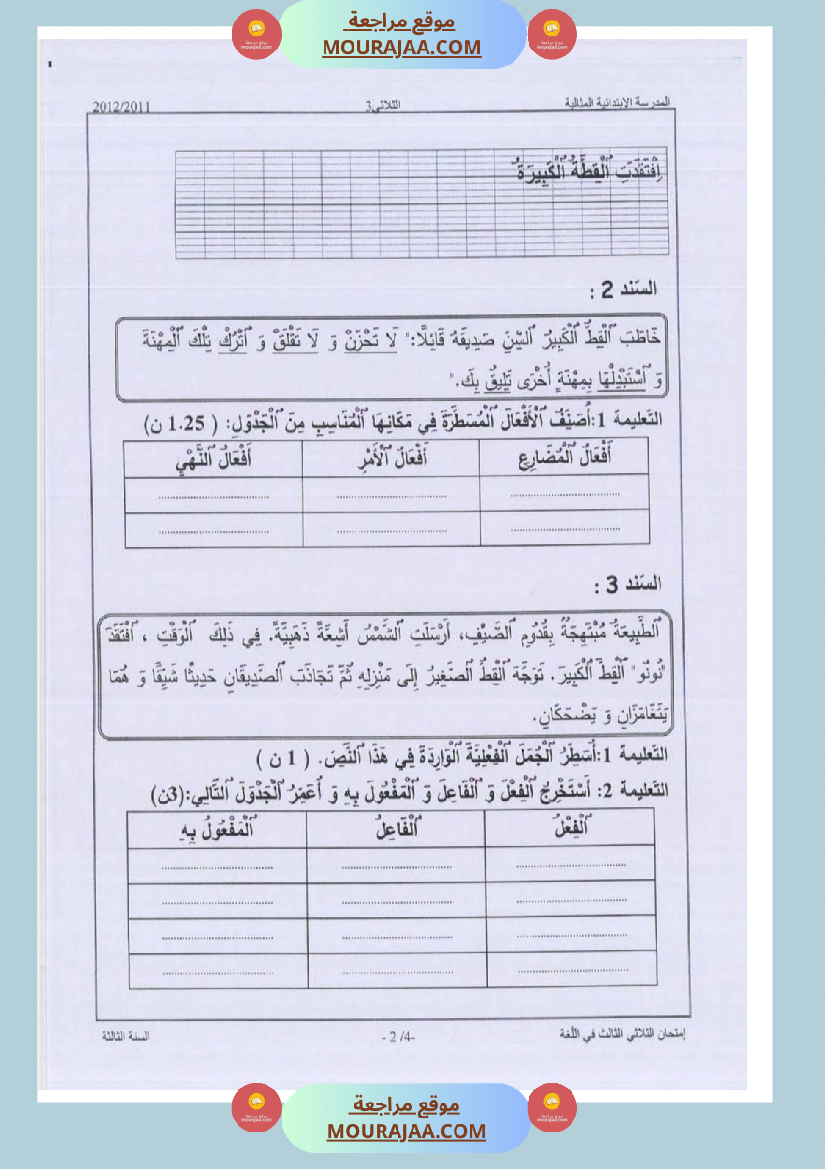 موقع مراجعة
MOURAJAA.COM
المدرسة الإبتدائية المثالية الثلاثي3 2012/2011
اِفْتَقَدَتِ ٱلْقِطَّةُ ٱلْكَبِيرَةُ
السّند 2 :
خَاطَبَ ٱلْقِطُّ ٱلْكَبِيرُ ٱلسِّنِّ صَدِيقَهُ قَائِلًا:" لَا تَحْزَنْ وَ لَا تَقْلَقْ وَ ٱتْرُكْ تِلْكَ ٱلْمِهْنَةَ
وَ ٱسْتَبْدِلْهَا بِمِهْنَةٍ أُخْرَى تَلِيقُ بِكَ."
التّعليمة 1:أُصَنِّفُ ٱلْأَفْعَالَ ٱلْمُسَطَّرَةَ فِي مَكَانِهَا ٱلْمُنَاسِبِ مِنَ ٱلْجَدْوَلِ: ( 1.25 ن)
أَفْعَالُ ٱلْمُضَارِعِ أَفْعَالُ ٱلْأَمْرِ أَفْعَالُ ٱلنَّهْيِ
السّند 3 :
ٱلطَّبِيعَةُ مُبْتَهِجَةٌ بِقُدُومِ ٱلصَّيْفِ، أَرْسَلَتِ ٱلشَّمْسُ أَشِعَّةً ذَهَبِيَّةً. فِي ذَلِكَ ٱلْوَقْتِ ، ٱفْتَقَدَ
"نُونُو" ٱلْقِطَّ ٱلْكَبِيرَ. تَوَجَّهَ ٱلْقِطُّ ٱلصَّغِيرُ إِلَى مَنْزِلِهِ ثُمَّ تَجَاذَبَ ٱلصَّدِيقَانِ حَدِيثًا شَيِّقًا وَ هُمَا
يَتَغَامَزَانِ وَ يَضْحَكَانِ.
التّعليمة 1:أُسَطِّرُ ٱلْجُمَلَ ٱلْفِعْلِيَّةَ ٱلْوَارِدَةَ فِي هَذَا ٱلنَّصِّ. ( 1 ن )
التّعليمة 2: أَسْتَخْرِجُ ٱلْفِعْلَ وَ ٱلْفَاعِلَ وَ ٱلْمَفْعُولَ بِهِ وَ أُعَمِّرُ ٱلْجَدْوَلَ ٱلتَّالِي:(3ن)
ٱلْفِعْلُ ٱلْفَاعِلُ ٱلْمَفْعُولُ بِهِ
إمتحان الثلاثي الثالث في اللّغة - 2 /4- السنة الثالثة
موقع مراجعة
MOURAJAA.COM